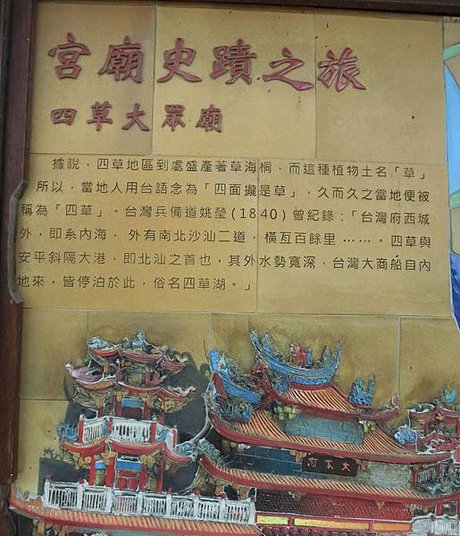 宮廟史蹟之旅
四草大眾廟
據說，四草地區到處盛產著草海桐，而這種植物土名「草」
所以，當地人用台語念為「四面攏是草」，久而久之當地便被
稱為「四草」。台灣兵備道姚瑩(1840)曾紀錄：「台灣府西城
外，即系內海，外有南北沙汕二道，橫亙百餘里……。四草與
安平斜隔大港，即北汕之首也，其外水勢寬深，台灣大商船自內
地來，皆停泊於此，俗名四草湖。」